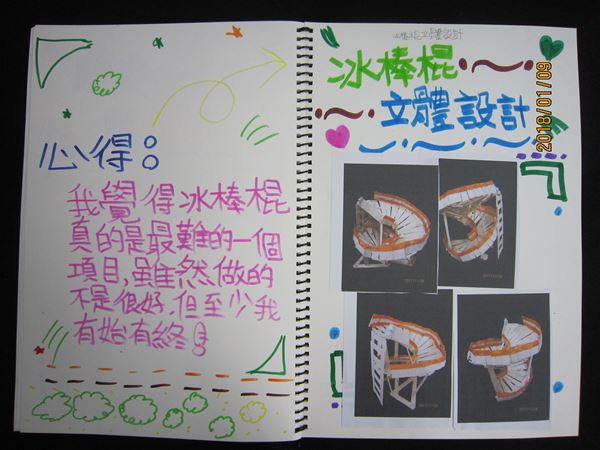 心得:
我覺得冰棒棍
真的是最難的一個
項目,雖然做的
不是很好,但至少我
有始有終!
冰棒棍立體設計
冰棒棍
立體設計
2018/01/09